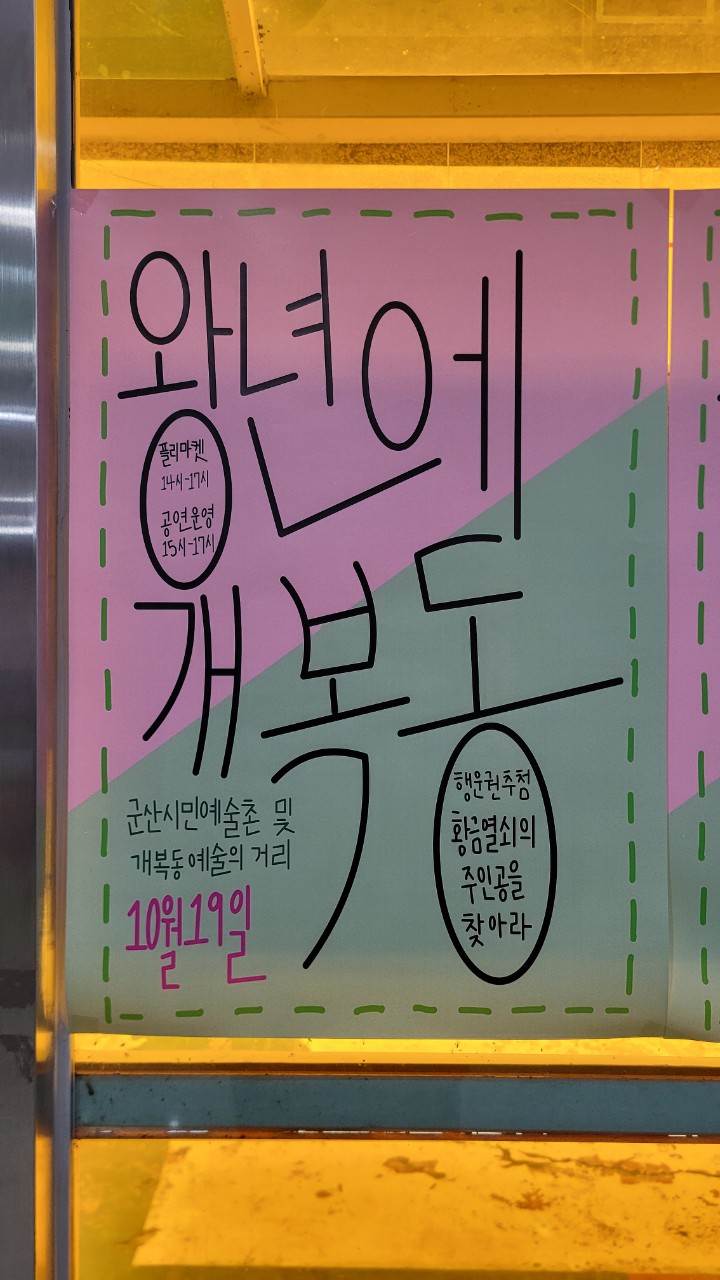 왕년에
플리마켓
14시-17시
공연운영
15시-17시
개복동
군산시민예술촌 및
개복동 예술의 거리
10월19일
행운권추첨
황금열쇠의
주인공을
찾아라